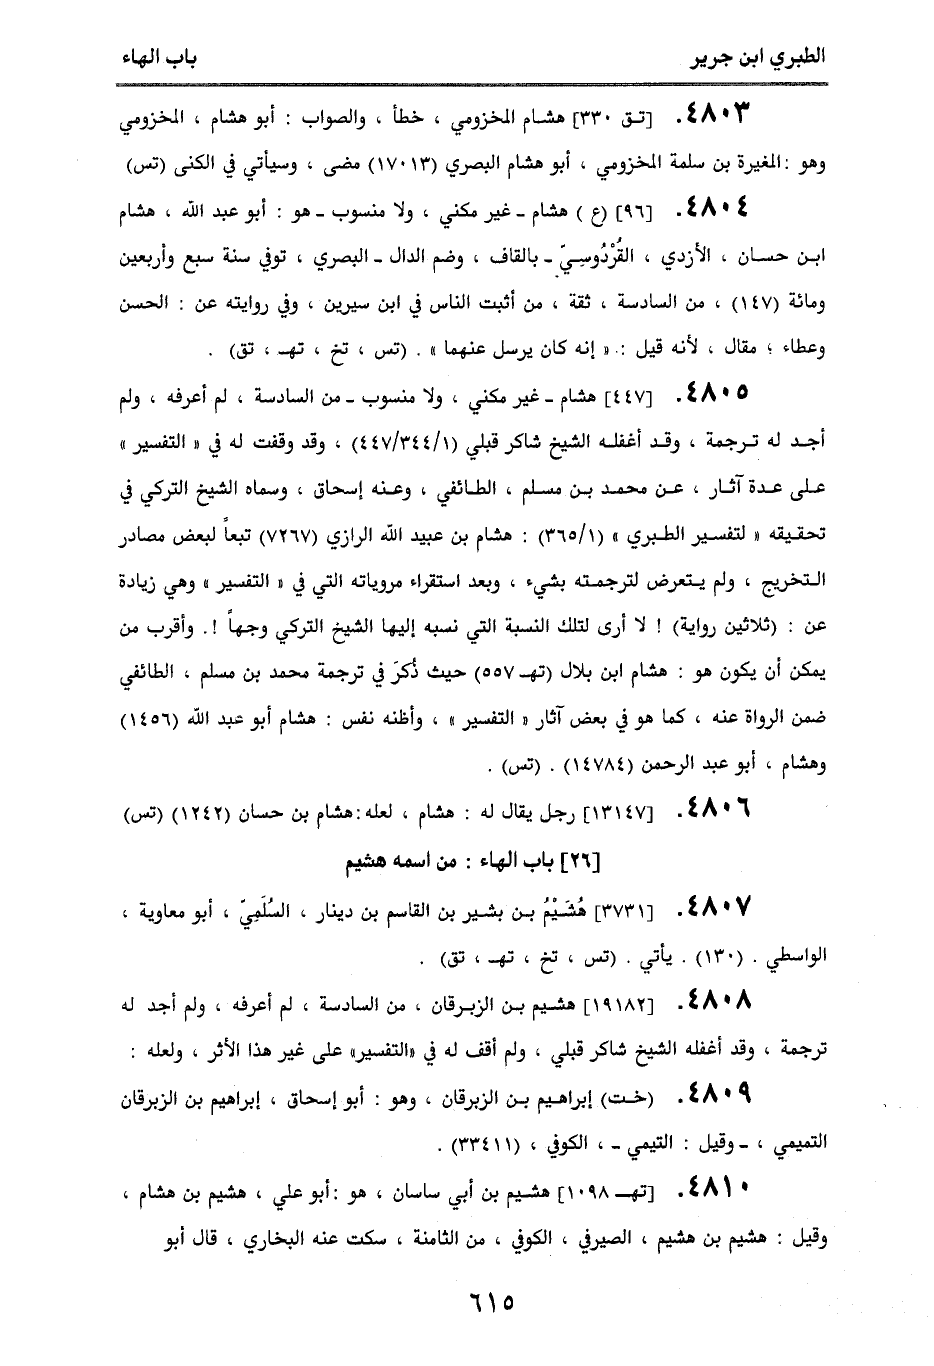 الطبري ابن جرير باب الهاء
٤٨٠٣. [تـق ٣٣٠] هشـام المخزومي ، خطأ ، والصواب : أبو هشام ، المخزومي
وهو :المغيرة بن سلمة المخزومي ، أبو هشام البصري (١٧٠١٣) مضى ، وسيأتي في الكنى (تس)
٤٨٠٤. [٩٦] (ع ) هشام ـ غير مكني ، ولا منسوب ـ هو : أبو عبد الله ، هشام
ابـن حسـان ، الأزدي ، القُرْدُوسِيّ ـ بالقاف ، وضم الدال ـ البصري ، توفي سنة سبع وأربعين
ومائة (١٤٧) ، من السادسة ، ثقة ، من أثبت الناس في ابن سيرين ، وفي روايته عن : الحسن
وعطاء ؛ مقال ، لأنه قيل : « إنه كان يرسل عنهما » . (تس ، تخ ، تهـ ، تق) .
٤٨٠٥. [٤٤٧] هشام ـ غير مكني ، ولا منسوب ـ من السادسة ، لم أعرفه ، ولم
أجـد له تـرجمة ، وقـد أغفلـه الشيخ شاكر قبلي (٤٤٧/٣٤٤/١) ، وقد وقفت له في « التفسير »
علـى عدة آثـار ، عـن محمـد بـن مسلم ، الطـائفي ، وعنه إسحاق ، وسماه الشيخ التركي في
تحقيـقه « لتفسير الطبري » (٣٦٥/١) : هشام بن عبيد الله الرازي (٧٢٦٧) تبعاً لبعض مصادر
التخريج ، ولم يـتعرض لترجمته بشيء ، وبعد استقراء مروياته التي في « التفسير » وهي زيادة
عن : (ثلاثين رواية) ! لا أرى لتلك النسبة التي نسبه إليها الشيخ التركي وجهاً !. وأقرب من
يمكن أن يكون هو : هشام ابن بلال (تهـ ٥٥٧) حيث ذُكرَ في ترجمة محمد بن مسلم ، الطائفي
ضمن الرواة عنه ، كما هو في بعض آثار « التفسير » ، وأظنه نفس : هشام أبو عبد الله (١٤٥٦)
وهشام ، أبو عبد الرحمن (١٤٧٨٤) . (تس) .
٤٨٠٦. [١٣١٤٧] رجل يقال له : هشام ، لعله:هشام بن حسان (١٢٤٢) (تس)
[٢٦] باب الهاء : من اسمه هشيم
٤٨٠٧. [٣٧٣١] هُشَيْمُ بـن بشير بن القاسم بن دينار ، السُلَمِيّ ، أبو معاوية ،
الواسطي . (١٣٠) . يأتي . (تس ، تخ ، تهـ ، تق) .
٤٨٠٨. [١٩١٨٢] هشيم بـن الزبـرقان ، من السادسة ، لم أعرفه ، ولم أجد له
ترجمة ، وقد أغفله الشيخ شاكر قبلي ، ولم أقف له في «التفسير» على غير هذا الأثر ، ولعله :
٤٨٠٩. (خـت) إبراهـيم بـن الزبرقان ، وهو : أبو إسحاق ، إبراهيم بن الزبرقان
التميمي ، ـ وقيل : التيمي ـ ، الكوفي ، (٣٣٤١١) .
٤٨١٠. [تهــ ١٠٩٨] هشـيم بن أبي ساسان ، هو :أبو علي ، هشيم بن هشام ،
وقيل : هشيم بن هشيم ، الصيرفي ، الكوفي ، من الثامنة ، سكت عنه البخاري ، قال أبو
٦١٥